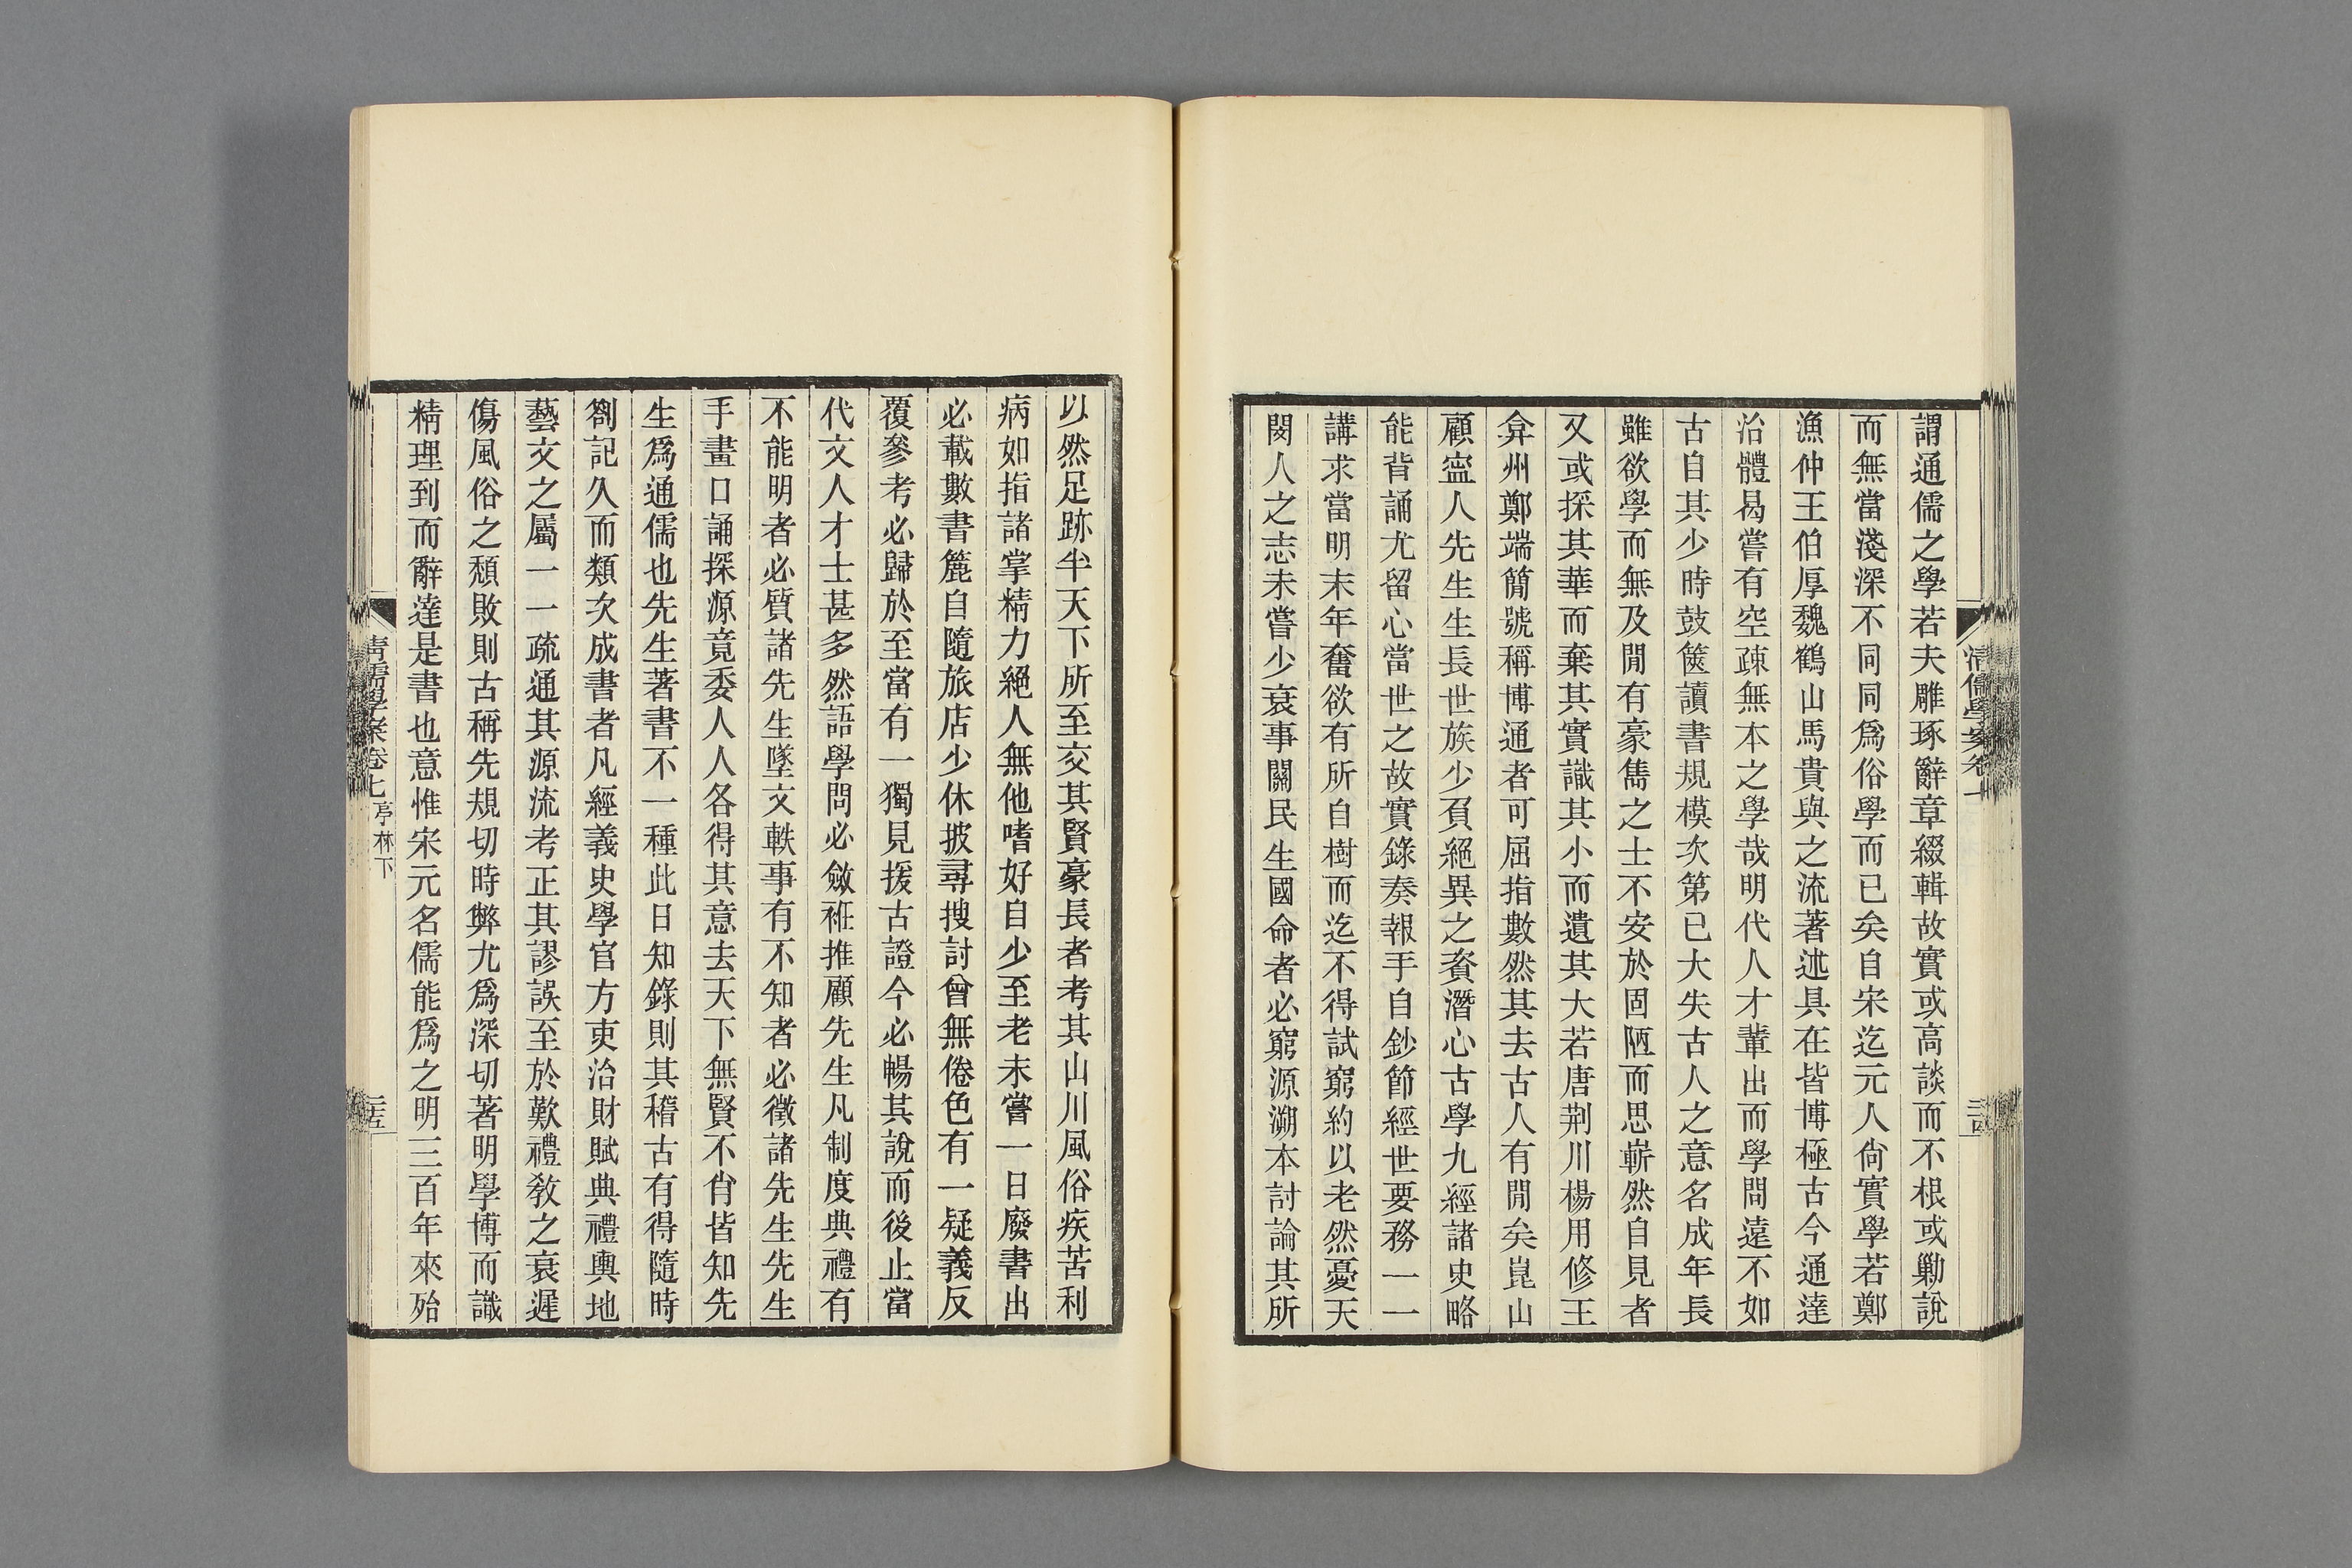 謂通儒之學若夫雕琢辭章綴輯故實或高談而不根或勦說
而無當淺深不同同爲俗學而已矣自宋迄元人尙實學若鄭
漁仲王伯厚魏鶴山馬貴與之流著述具在皆博極古今通達
治體曷嘗有空疎無本之學哉明代人才輩出而學問遠不如
古自其少時鼓篋讀書規模次第已大失古人之意名成年長
雖欲學而無及閒有豪雋之士不安於固陋而思嶄然自見者
又或探其華而棄其實識其小而遺其大若唐荆川楊用修王
弇州鄭端簡號稱博通者可屈指數然其去古人有閒矣崑山
顧寍人先生生長世族少負絕異之資潛心古學九經諸史略
能背誦尤留心當世之故實錄奏報手自鈔節經世要務一一
講求當明末年奮欲有所自樹而迄不得試窮約以老然憂天
閔人之志未嘗少衰事關民生國命者必窮源溯本討論其所
以然足跡半天下所至交其賢豪長者考其山川風俗疾苦利
病如指諸掌精力絕人無他嗜好自少至老未嘗一日廢書出
必載數書簏自隨旅店少休披尋搜討曾無倦色有一疑義反
覆參考必歸於至當有一獨見援古證今必暢其說而後止當
代文人才士甚多然語學問必斂袵推顧先生凡制度典禮有
不能明者必質諸先生墜文軼事有不知者必徵諸先生先生
手畫口誦探源竟委人人各得其意去天下無賢不肖皆知先
生爲通儒也先生著書不一種此日知錄則其稽古有得隨時
劄記久而類次成書者凡經義史學官方吏治財賦典禮輿地
藝文之屬一一疏通其源流考正其謬誤至於歎禮敎之衰遲
傷風俗之頹敗則古稱先規切時弊尤爲深切著明學博而識
精理到而辭達是書也意惟宋元名儒能爲之明三百年來殆
清儒學案卷七
亭林下